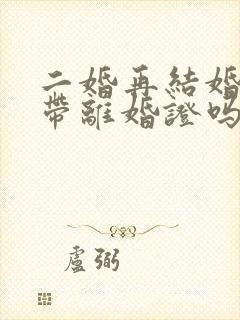 二婚再結婚
帶離婚證嗎
盧弼